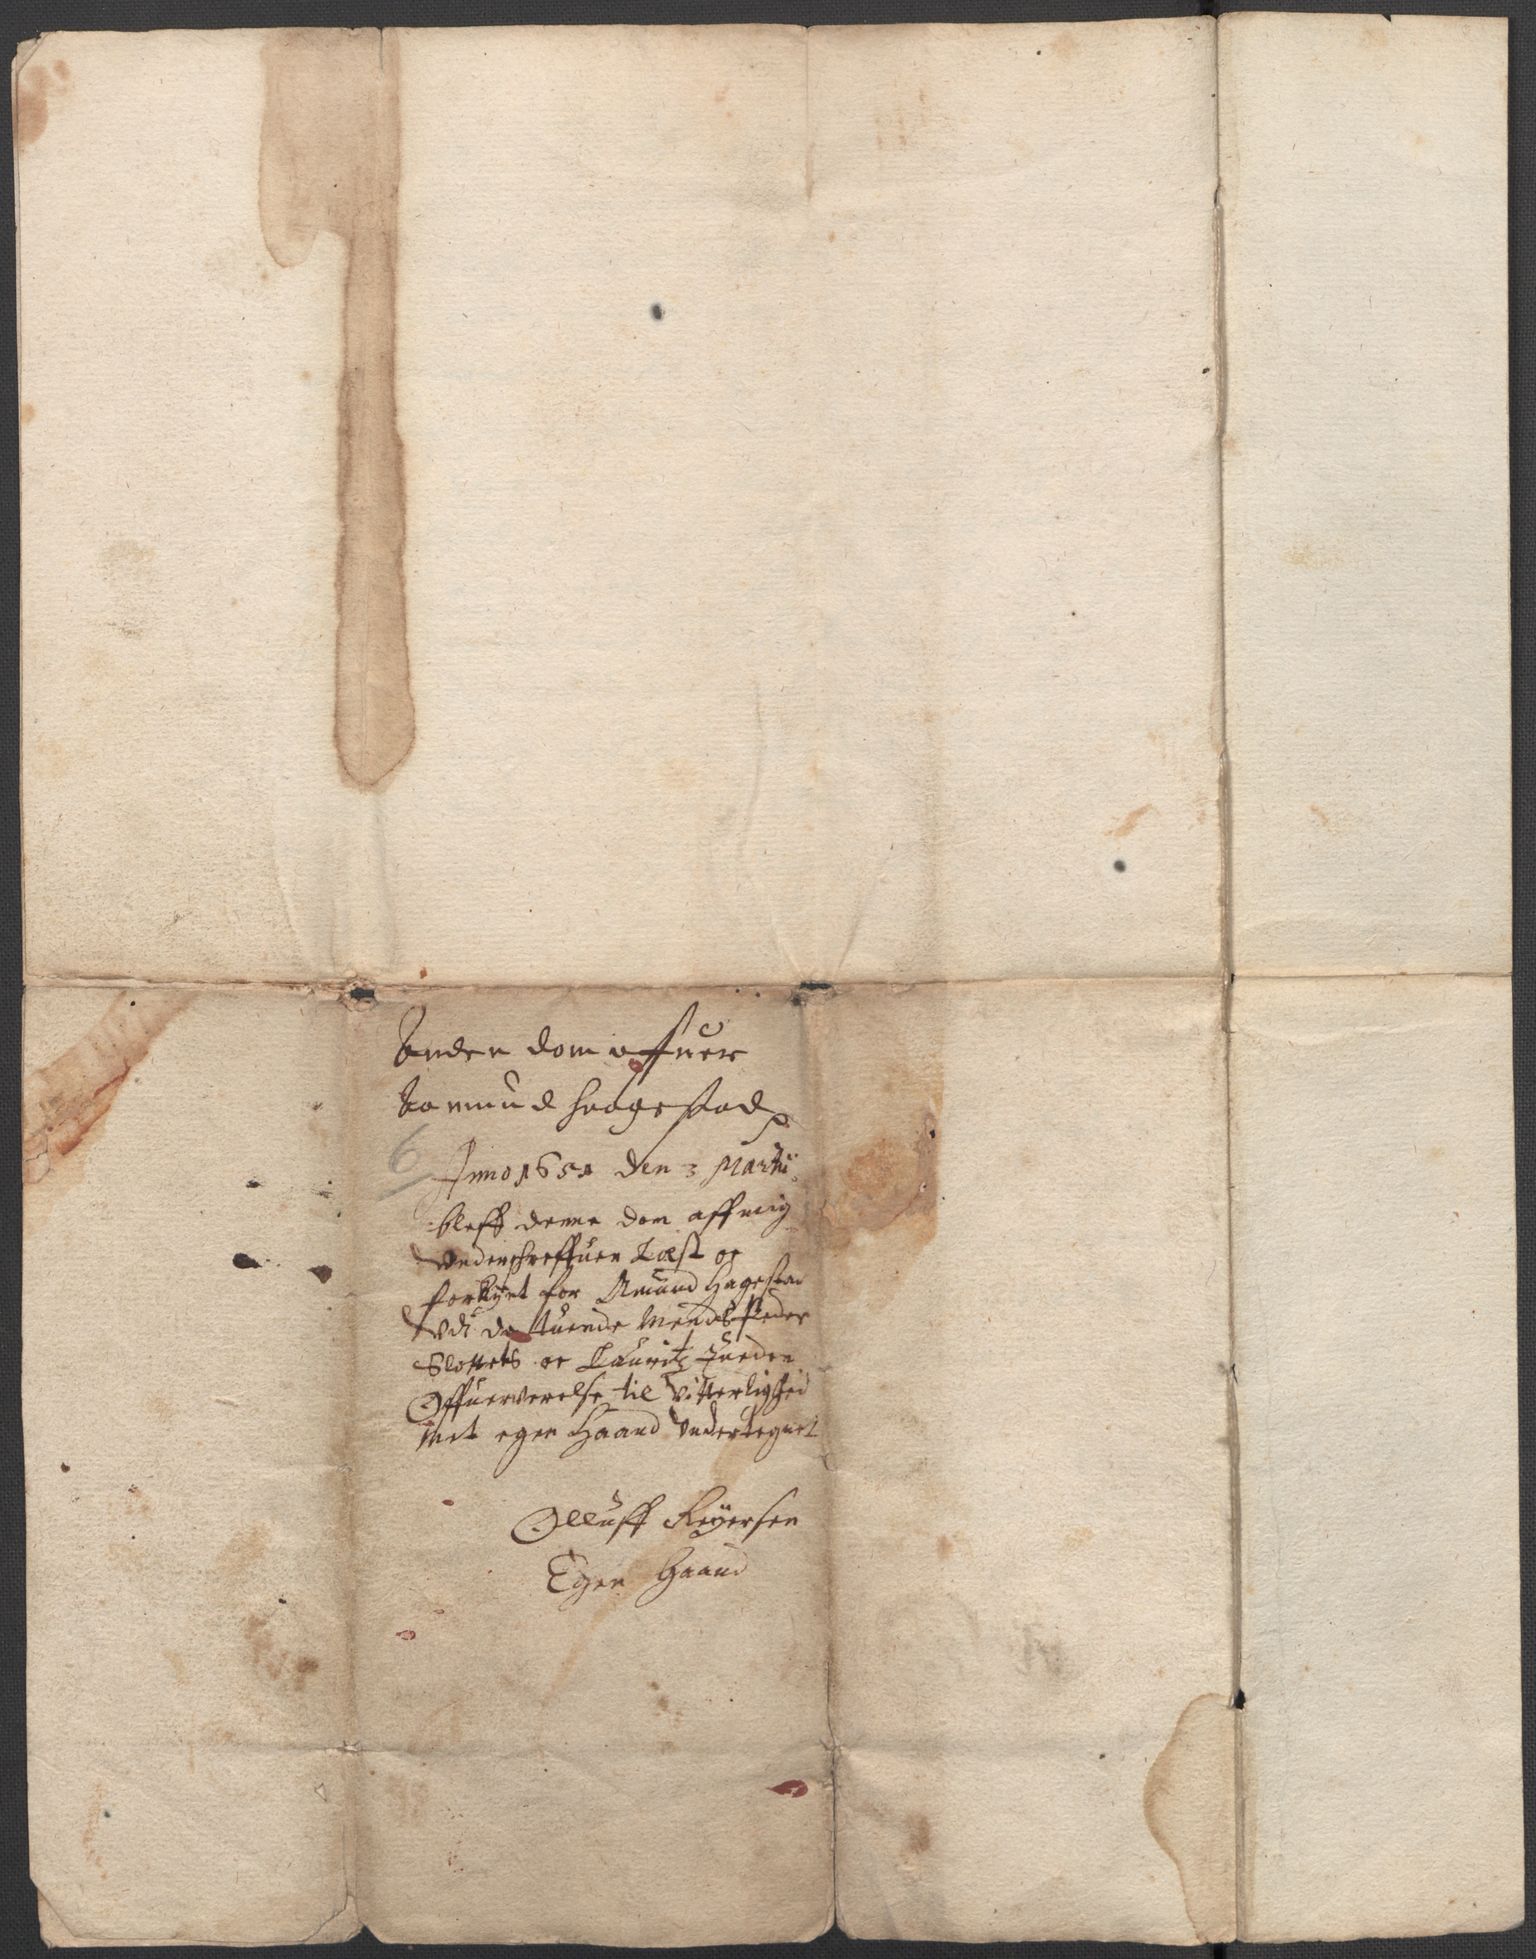 Anden dom offuer
Aamund Haagestad
6
Anno 1651 den 3 Martij
bleff denne dom aff mig
Underschreffuen Læst oc
forkynt for Amund Hagestad
Vdi de tuende Mends Peder
Slottets oc Lauritz
Offuerverelse til Vitterlighed
met egen Haand Vndertegnet
Olluff Reyersen
Egen Haand